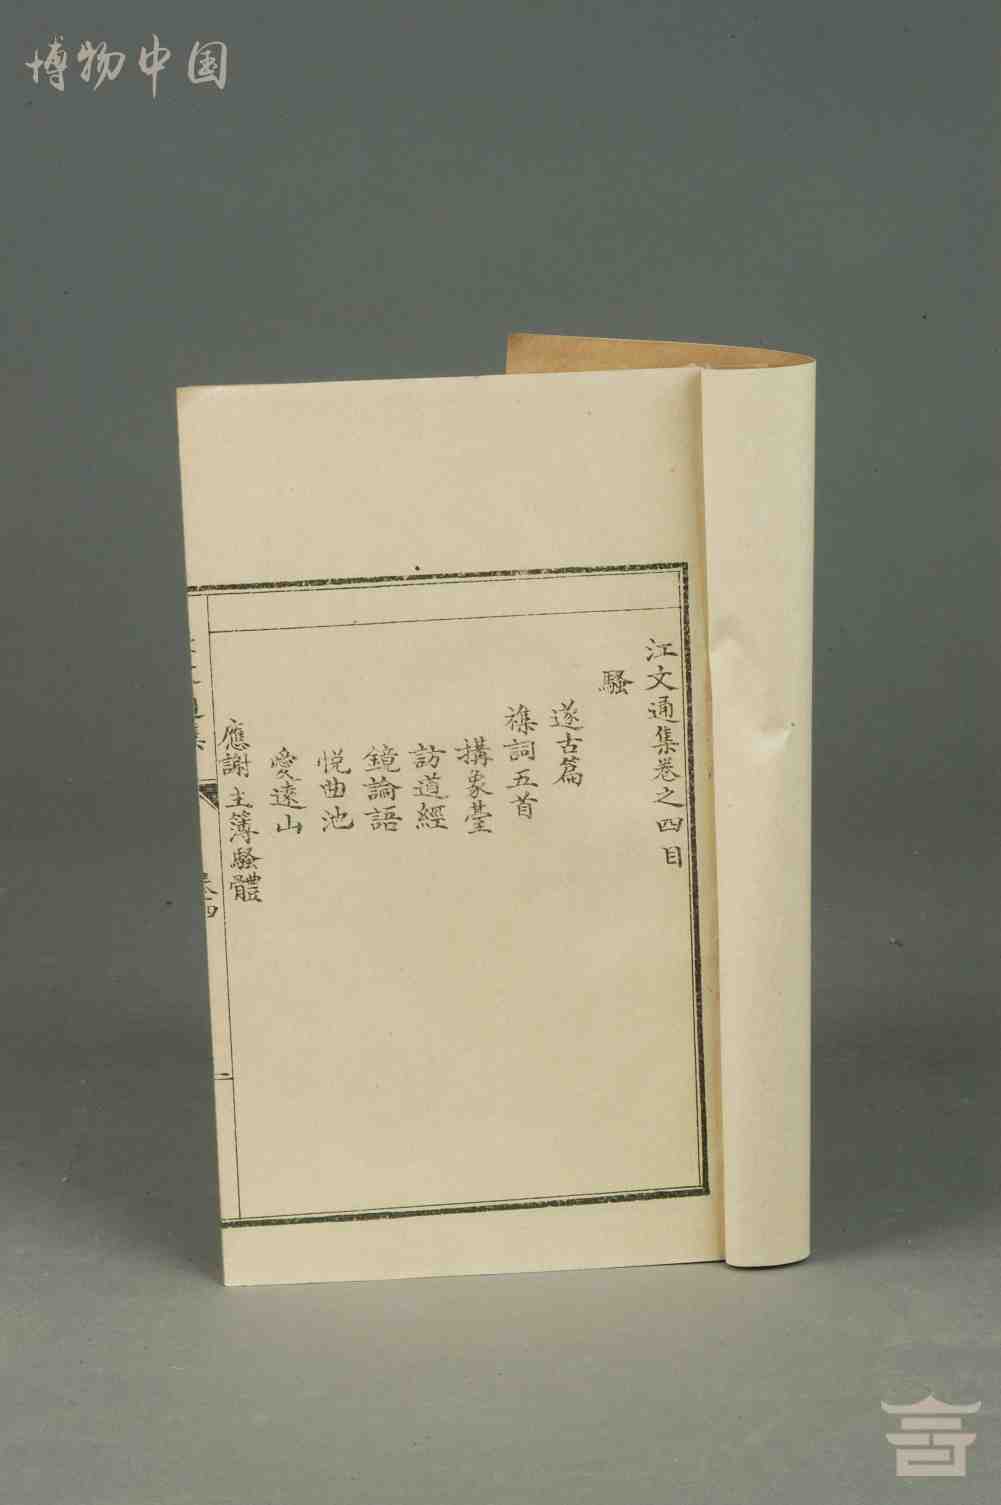 博物中国
江文通集卷之四目
騷
遂古篇
襍詞五首
搆象臺
訪道經
鏡論語
悅曲池
愛遠山
應謝主簿騷體